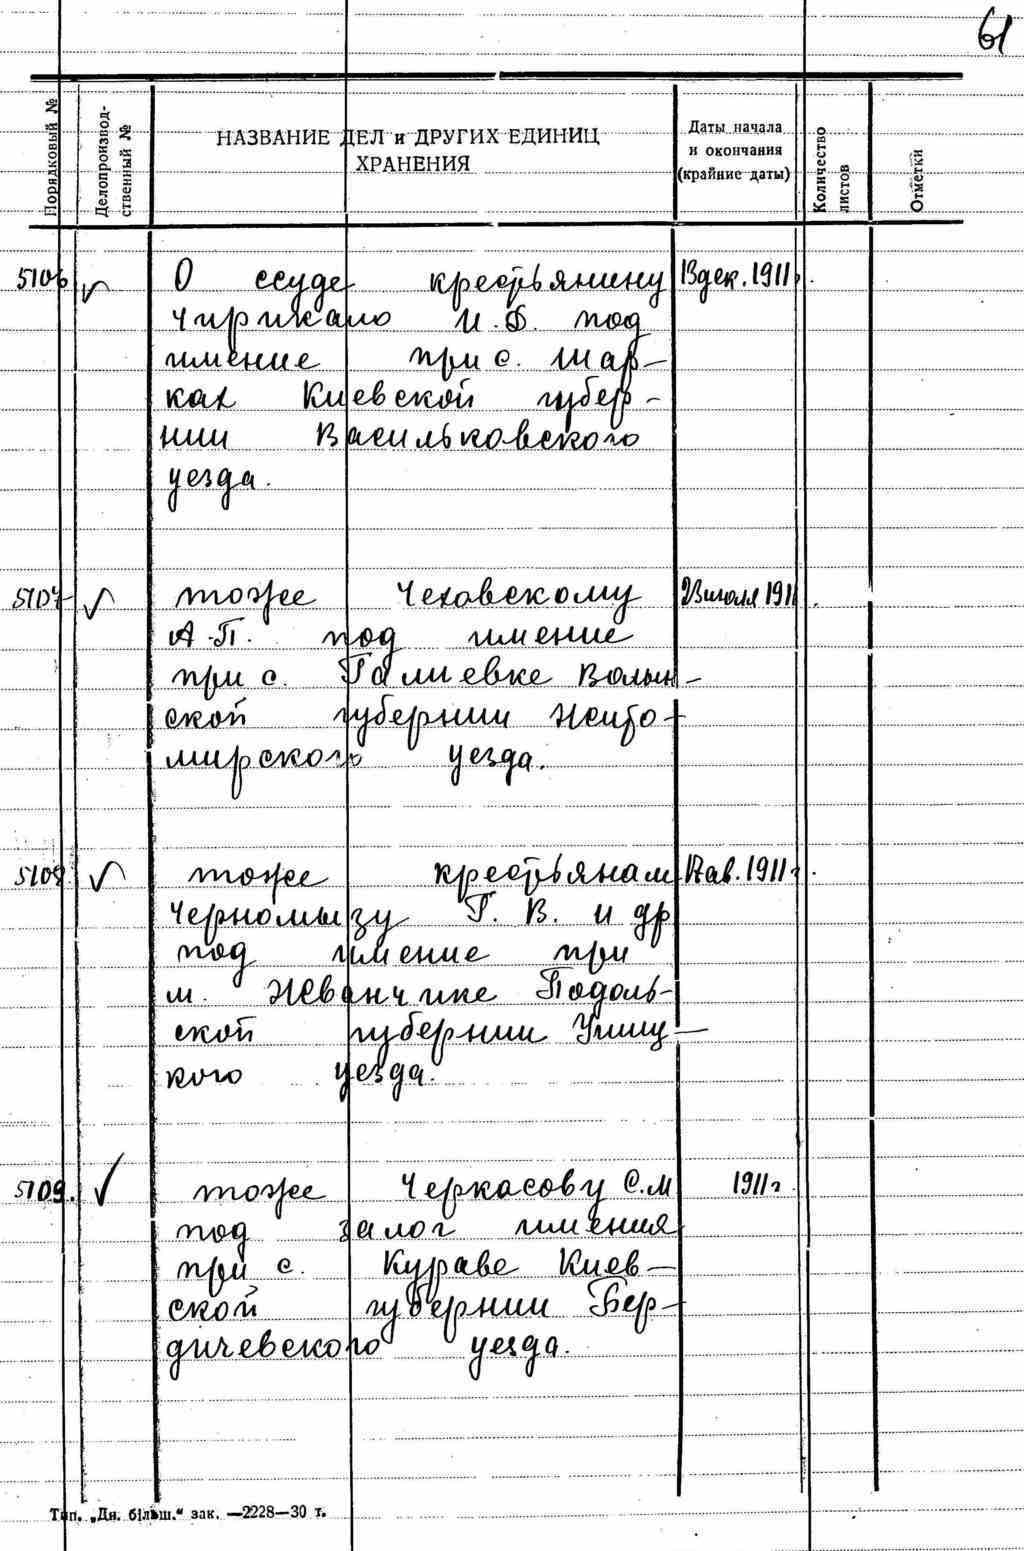 61
Порядковый №
Делопроизвод-
ственный №
НАЗВАНИЕ ДЕЛ и ДРУГИХ ЕДИНИЦ
ХРАНЕНИЯ
Даты начала
и окончания
(крайние даты)
Количество
листов
Отметки
5106 О ссуде крестьянину 13 дек. 1911
Чирикало И.Ф. под
имение при с. Шар-
ках Киевской губер-
нии Васильковского
уезда.
5107 тоже Чеховскому 23 июля 1911
А.П. под имение
при с. Галиевке Волын-
ской губернии Жито-
мирского уезда.
5108 тоже крестьянам 17 ав. 1911 г.
Черномызу Г. В. и др
под имение при
м. Жванчике Подоль-
ской губернии Ушиц-
кого уезда.
5109. тоже Черкасову С.М 1911 г
под залог имения
при с. Кураве Киев-
ской губернии Бер-
дичевского уезда.
Тип. „Дн. більш." зак. —2228—30 т.